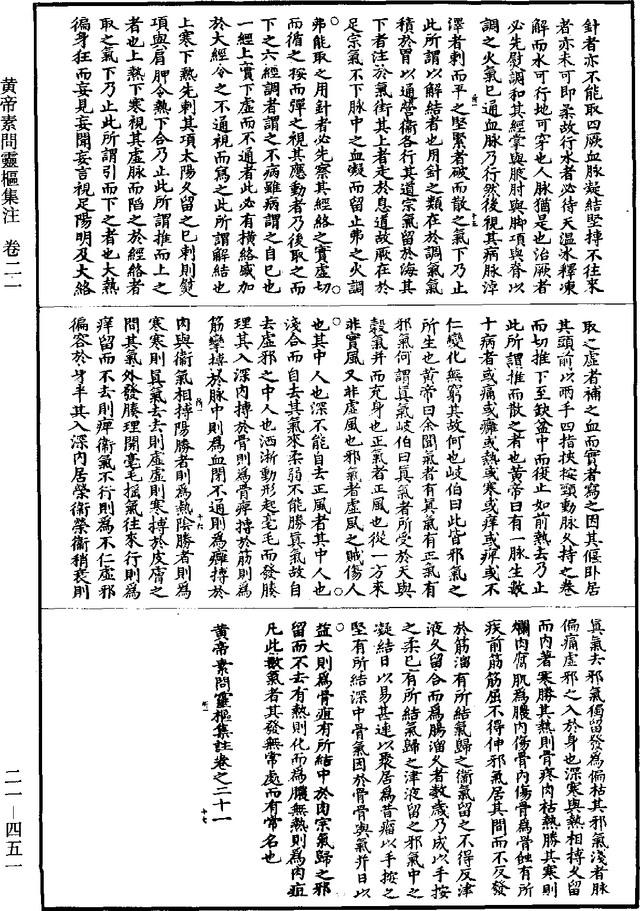 針者亦不能取四厥血脉凝結堅搏不往來
者亦未可即柔故行水者必待天温氷釋凍
解而水可行地可穿也人脉猶是也治厥者
必先熨調和其經掌與腋肘與脚項與脊以
調之火氣已通血脉乃行然後視其病脉淖
澤者刺而平之堅緊者破而散之氣下乃止
此所謂以解結者也用針之類在於調氣氣
積於胃以通營衞各行其道宗氣留於海其
下者注於氣街其上者走於息道故厥在於
足宗氣不下脉中之血凝而留止弗之火調
弗能取之用針者必先察其經絡之實虛切
而循之按而彈之視其應動者乃後取之而
下之六經調者謂之不病雖病謂之自已也
一經上實下虛而不通者此必有横絡盛加
於大經令之不通視而寫之此所謂解結也
上寒下熱先刺其項太陽久留之已刺則熨
項與肩胛令熱下合乃止此所謂推而上之
者也上熱下寒視其虛脉而陷之於經絡者
取之氣下乃止此所謂引而下之者也大熱
徧身狂而妄見妄聞妄言視足陽明及大絡
取之虛者補之血而實者寫之因其偃卧居
其頭前以兩手四指挾按頸動脉久持之卷
而切推下至缺盆中而復止如前熱去乃止
此所謂推而散之者也黄帝曰有一脉生數
十病者或痛或癰或熱或寒或痒或痺或不
仁變化無窮其故何也岐伯曰此皆邪氣之
所生也黄帝曰余聞氣者有眞氣有正氣有
邪氣何謂眞氣岐伯曰眞氣者所受於天與
穀氣并而充身也正氣者正風也從一方來
非實風又非虛風也邪氣者虛風之賊傷人
也其中人也深不能自去正風者其中人也
淺合而自去其氣來柔弱不能勝眞氣故自
去虛邪之中人也洒淅動形起毫毛而發腠
理其入深内搏於骨則爲骨痺搏於筋則爲
筋攣搏於脉中則爲血閉不通則爲癰搏於
肉與衞氣相搏陽勝者則爲熱陰勝者則爲
寒寒則眞氣去去則虛虛則寒搏於皮膚之
間其氣外發腠理開毫毛揺氣往來行則爲
痒留而不去則痺衞氣不行則爲不仁虛邪
徧容於身半其入深内居榮衞榮衞稍衰則
眞氣去邪氣獨留發爲偏枯其邪氣淺者脉
偏痛虛邪之入於身也深寒與熱相搏久留
而内著寒勝其熱則骨疼肉枯熱勝其寒則
爛肉腐肌爲膿内傷骨内傷骨爲骨蝕有所
疾前筋筋屈不得伸邪氣居其間而不反發
於筋溜有所結氣歸之衞氣留之不得反津
液久留合而爲腸溜久者數歲乃成以手按
之柔已有所結氣歸之津液留之邪氣中之
凝結日以易甚連以聚居爲昔瘤以手按之
堅有所結深中骨氣因於骨骨與氣并日以
益大則爲骨疽有所結中於肉宗氣歸之邪
留而不去有熱則化而爲膿無熱則爲肉疽
凡此數氣者其發無常處而有常名也
黄帝素問靈樞集註卷之二十一
黄帝素問靈樞集注 卷二一
二一—四五一